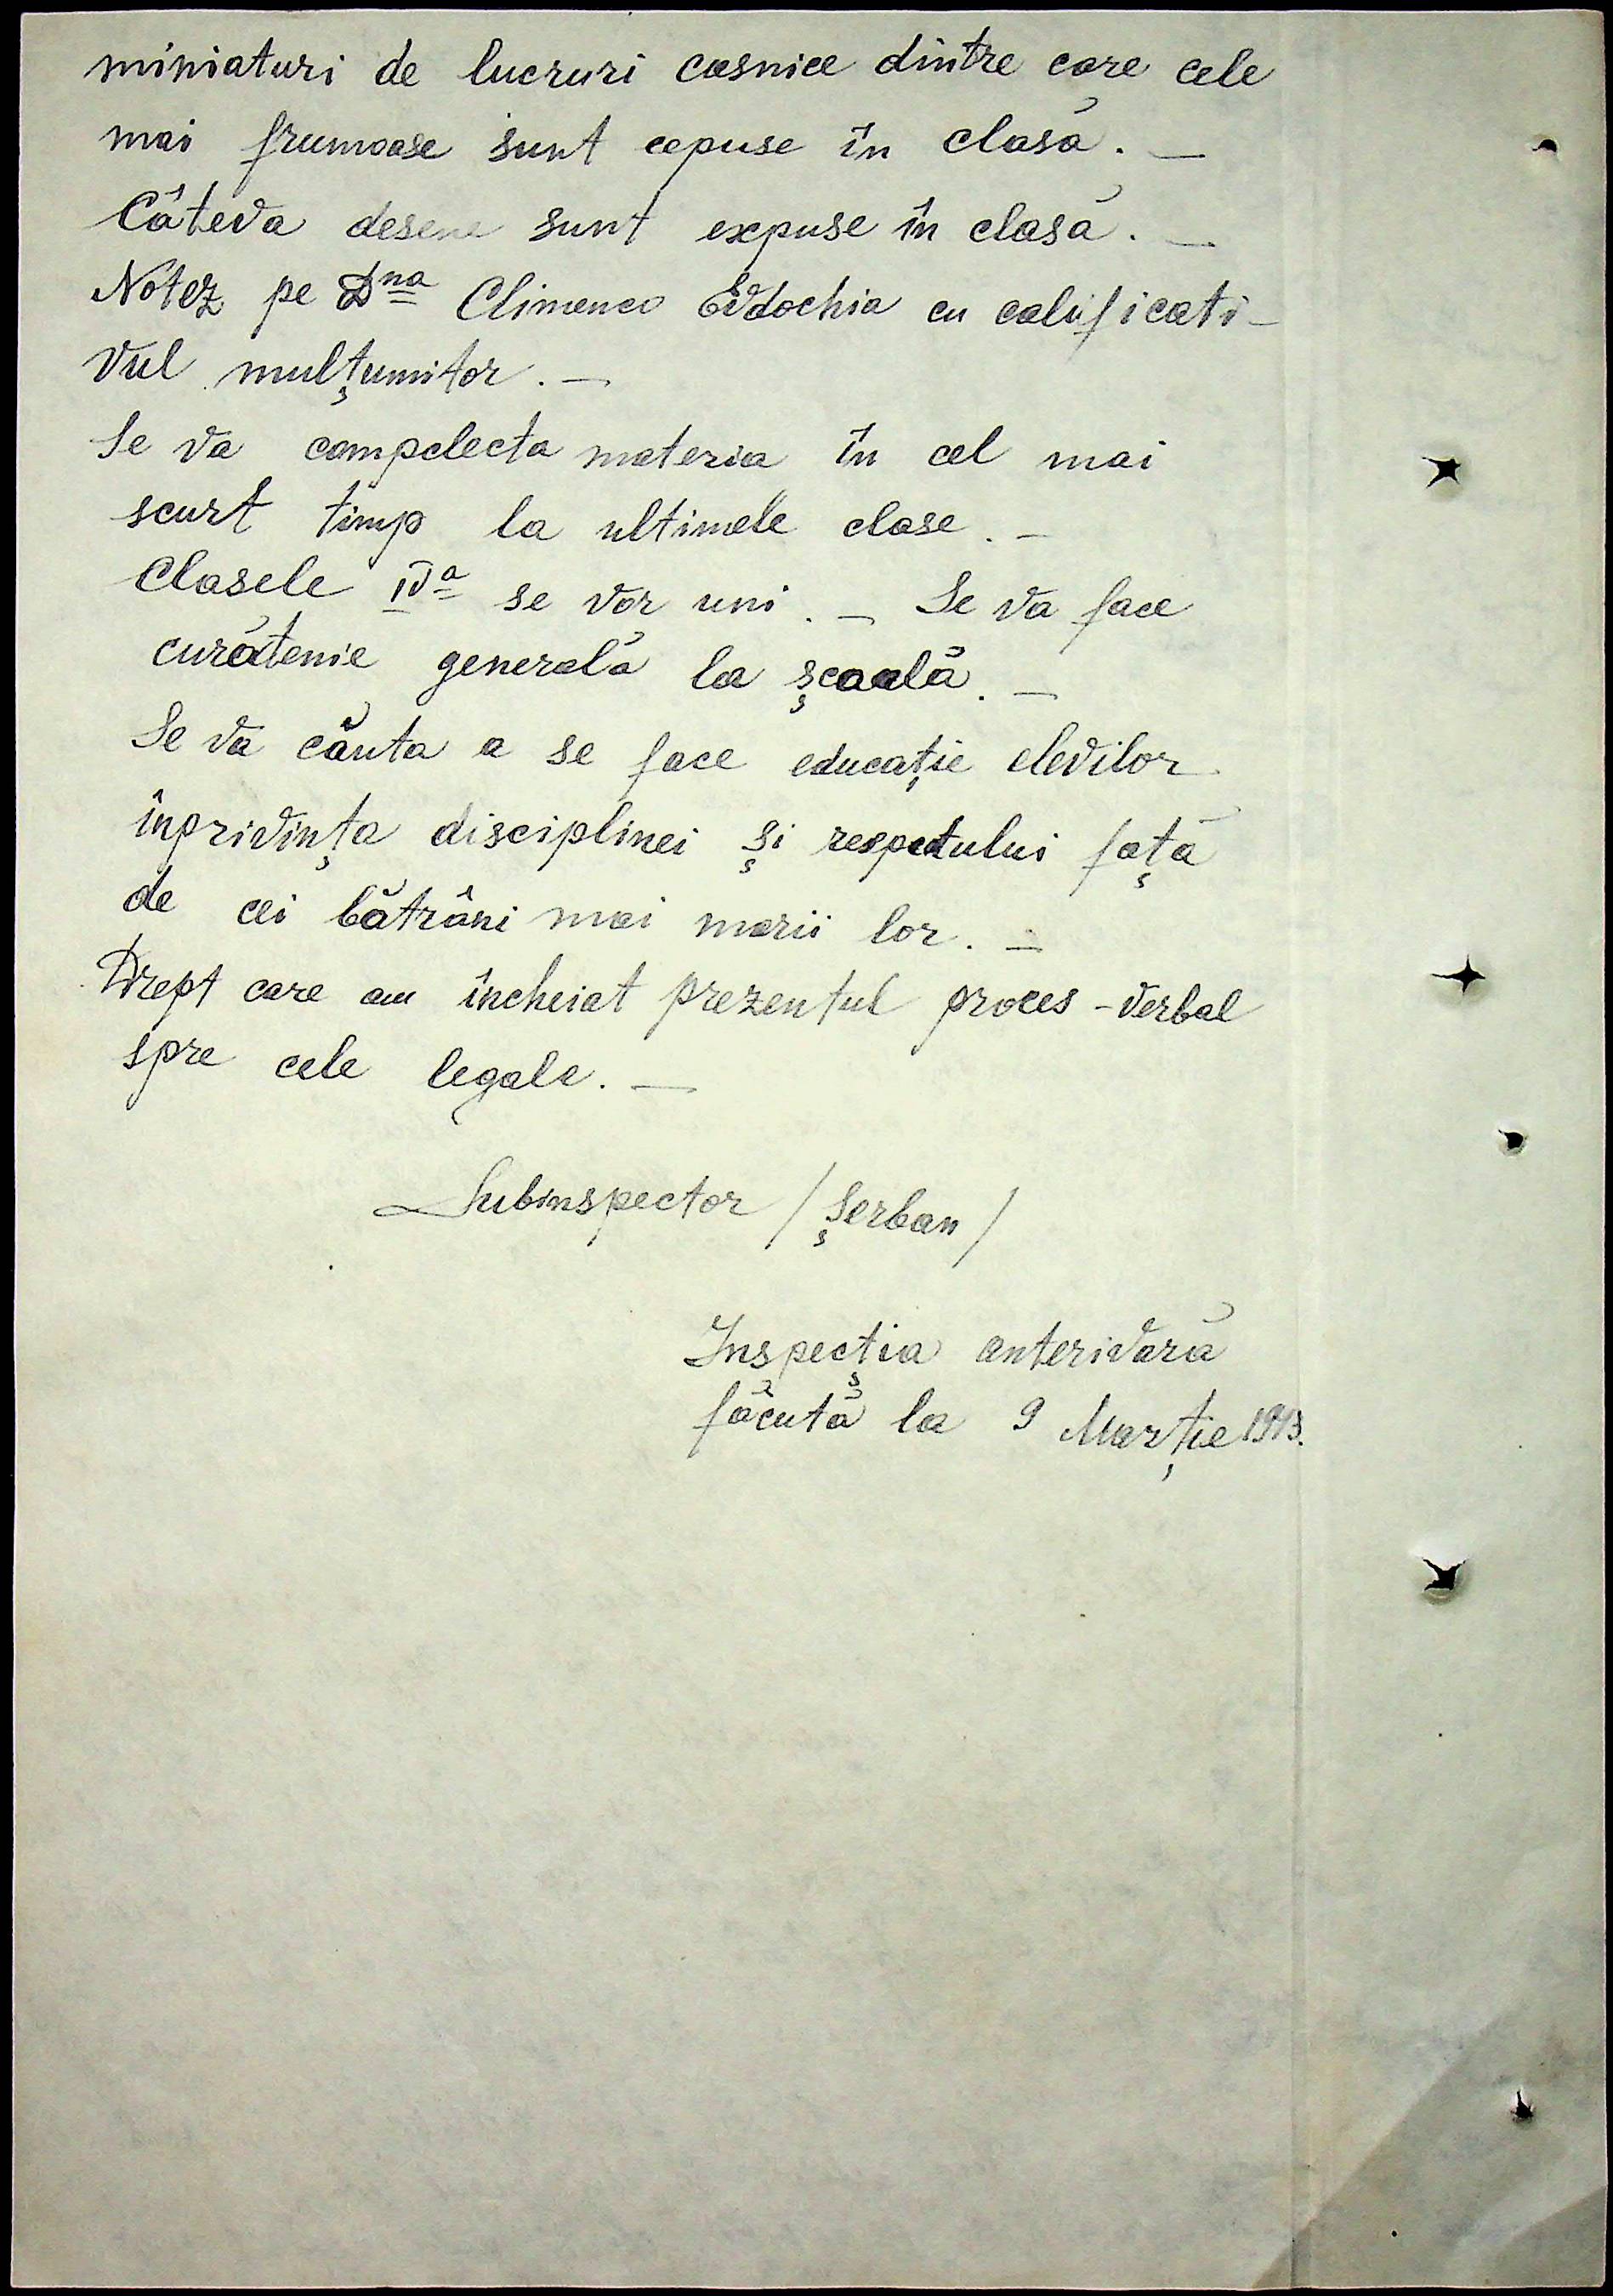 miniaturi de lucruri casnice dintre care cele
mai frumoase sunt expuse în clasă. —
Câteva desene sunt expuse în clasă. —
Notez pe Dna Climenco Evdochia cu calificati-
vul mulțumitor. —
Se va complecta materia în cel mai
scurt timp la ultimele clase. —
Clasele IVa se vor uni. — Se va face
curătenie generală la școală. —
Se va căuta a se face educație elevilor
înprivința disciplinei și respectului față
de cei bătrâni mai marii lor. —
Drept care am încheiat prezentul proces-verbal
spre cele legale. —
Subinspector /Șerban/
Inspecția anterioară
făcută la 9 Marție 1943.